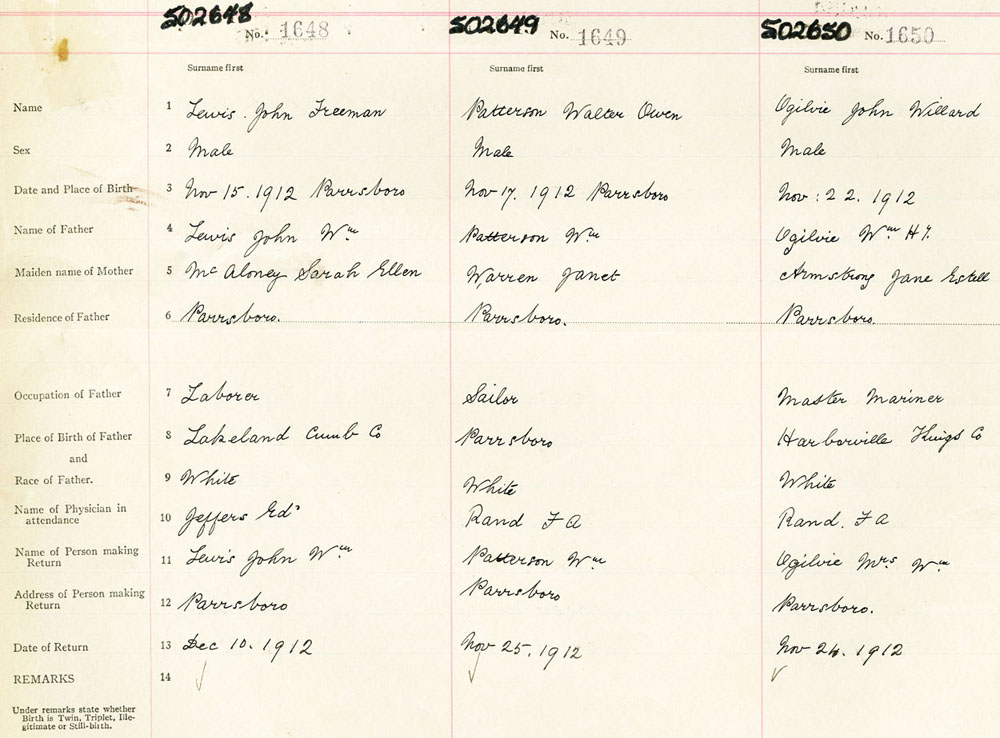 502648 No. 1648 502649 No. 1649 502650 No. 1650
Surname first Surname first Surname first
Name 1 Lewis. John Freeman Patterson Walter Owen Ogilvie John Willard
Sex 2 Male Male Male
Date and Place of Birth 3 Nov 15. 1912 Parrsboro Nov 17. 1912 Parrsboro Nov: 22. 1912
Name of Father 4 Lewis John Wm Patterson Wm Ogilvie Wm Hy.
Maiden name of Mother 5 Mc Aloney Sarah Ellen Warren Janet Armstrong Jane Estell
Residence of Father 6 Parrsboro. Parrsboro. Parrsboro.
Occupation of Father 7 Laborer Sailor Master Mariner
Place of Birth of Father 8 Lakeland Cumb Co Parrsboro Harborville Kings Co
and
Race of Father. 9 White White White
Name of Physician in
attendance 10 Jeffers Edd Rand F A Rand. F A
Name of Person making
Return 11 Lewis John Wm Patterson Wm Ogilvie Mrs Wm
Address of Person making
Return 12 Parrsboro Parrsboro Parrsboro.
Date of Return 13 Dec 10. 1912 Nov 25. 1912 Nov 26. 1912
REMARKS 14
Under remarks state whether
Birth is Twin, Triplet, Ille-
gitimate or Still-birth.